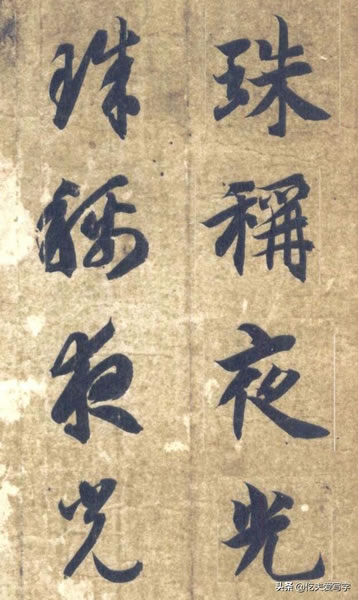 珠稱夜光
珠稱夜光
头条 @忆天爱写字